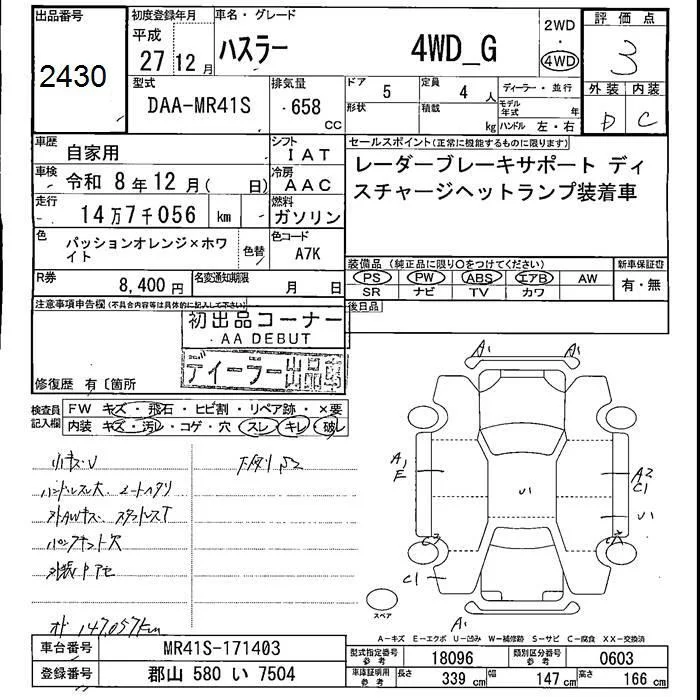 出品番号
2430
初度登録年月
平成
27 12 月
車名・グレード
ハスラー 4WD_G
2WD
・
4WD
評価点
3
外装 内装
D C
型式
DAA-MR41S
排気量
658
CC
ドア
5
定員
4 人
形状
積載
kg
ディーラー・並行
モデル年式 年
ハンドル 左・右
車歴
自家用
シフト
IAT
車検
令和 8年12月( 日)
冷房
AAC
走行
14万7千056 km
燃料
ガソリン
色
パッションオレンジ×ホワイト
色替
色コード
A7K
セールスポイント(正常に機能するものに限ります)
レーダーブレーキサポート ディ
スチャージヘットランプ装着車
R券
8,400 円
名変通知期限
月 日
装備品 (純正品に限り○をつけてください)
PS PW ABS エアB AW
SR ナビ TV カワ
新車保証書
有・無
注意事項申告欄(不具合内容等は具体的に記入して下さい)
後日品
初出品コーナー
AA DEBUT
ディーラー出品車
修復歴 有〔箇所
検査員記入欄
FW キズ・飛石・ヒビ割・リペア跡・×要
内装 キズ・汚レ・コゲ・穴・スレ・キレ・破レ
小キズU
ハンドルスレ大
パンクキット欠
147,057km
A1 A1
A1
E
A2
C1
C1
A1
スペア
A-キズ E-エクボ U-凹み W-補修跡 S-サビ C-腐食 XX-交換済
車台番号
MR41S-171403
登録番号
郡山 580 い 7504
型式指定番号
参考
18096
類別区分番号
参考
0603
車庫証明用
参考
長さ 339 cm
幅 147 cm
高さ 166 cm